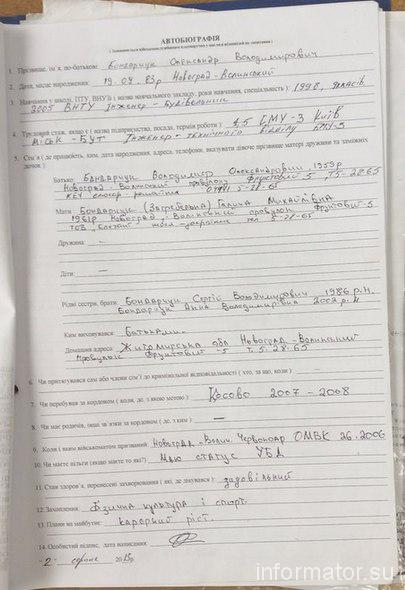 АВТОБІОГРАФІЯ
1. Прізвище, ім'я, по-батькове: Бондарчук Олександр Володимирович
2. Дата, місце народження: 19.09.83р Новоград-Волинський
3. Навчання у школі, ПТУ, ВНУЗі ( назва навчального закладу, роки навчання, спеціальність ): 1998,
2005 ВНТУ Інженер - Будівельник
4. Трудовий стаж, якщо є ( назва підприємства, посада, термін роботи ) 4,5 БМУ-3 Київ
МІСЬК - БУТ Інженер - технічного відділу БМУ-3
5. Сім'я ( де працюють, ким, дата народження, адреса, телефони, вказувати дівоче прізвище матері дружини та заміжніх
дочок )
Батько: Бондарчук Володимир Олександрович 1959р
Новоград-Волинський провулок Фруктовий 5, т 5-28-65
КЕЧ слюсар-
Мати Бондарчук (Загребельна) Галина Михайлівна
1961р Новоград-Волинський провулок Фруктовий-5
ТОВ тел 5-28-65
Дружина: —
Діти: —
Рідні сестри, брати Бондарчук Сергій Володимирович 1986 р.н.
Бондарчук Анна Володимирівна 2002 р.н
Ким виховувався: Батьками
Домашня адреса: Житомирська обл Новоград-Волинський
провулок Фруктовий-5 т. 5-28-65
6. Чи притягувався сам або члени сім'ї до кримінальної відповідальності ( хто, за що, коли ) —
7. Чи перебував за кордоном ( коли, де, з якою метою ) Косово 2007 - 2008
8. Чи має родичів, інші зв'язки за кордоном ( де, з ким ) —
9. Коли і яким військоматом призваний: Новоград-Волин. ОМВК 2006
10. Чи маєте пільги (якщо маєте то які?) Маю статус УБД
11. Стан здоров'я, перенесені захворювання ( які, де лікувався ) задовільний
12. Захоплення Фізична культура і спорт.
13. Плани на майбутнє: карєрний ріст.
14. Особистий підпис, дата написання
"2" серпня
informator.su